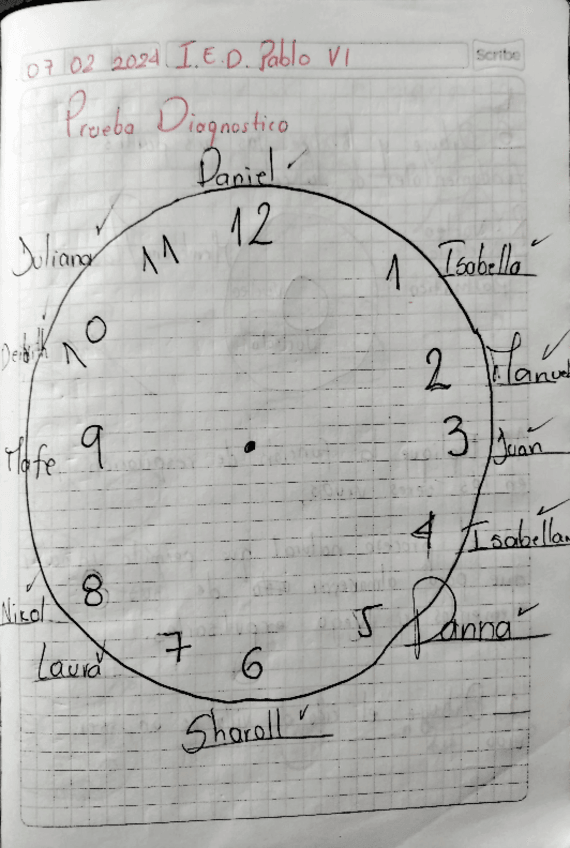 07 02 2024 I.E.D. Pablo VI Scribe
Prueba Diagnostico
Daniel
12
Juliana 11 1 Isabella
10 2 Manuel
Mafe 9 3 Juan
4 Isabella
Nikol 8 5 Danna
Laura 7 6
Sharoll